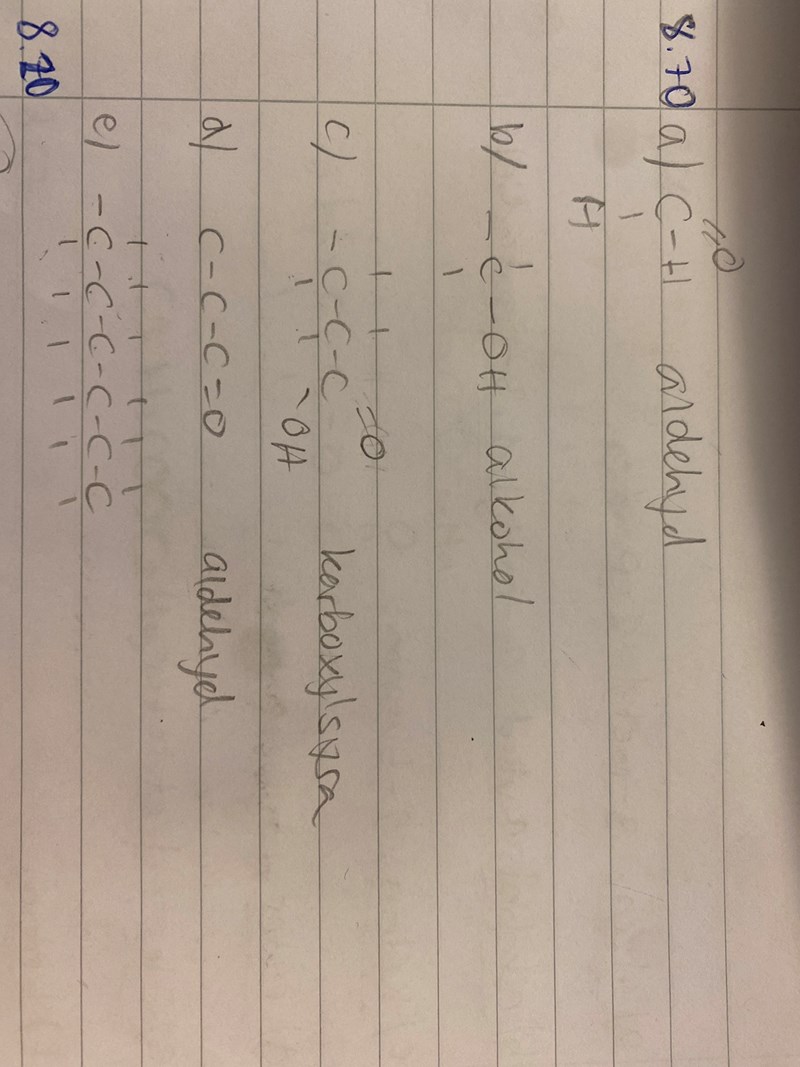 8.70 a) C-H aldehyd
=O
H
b) -C-OH alkohol
c) -C-C-C karboxylsyra
=O
OH
d) C-C-C=O aldehyd
e) -C-C-C-C-C-C
8.70